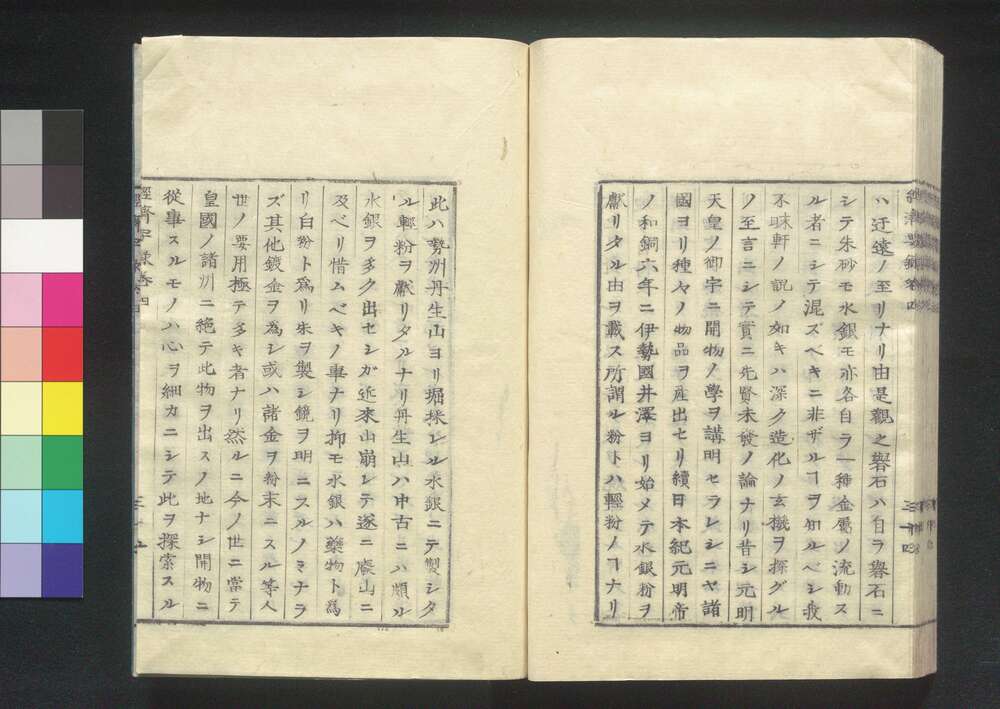 經濟要録卷四
三十四
ハ迂遠ノ至リナリ由是觀之礜石ハ自ラ礜石ニ
シテ朱砂モ水銀モ亦各自ラ一種金屬ノ流動ス
ル者ニシテ混ズベキニ非ザルヿヲ知ルベシ我
不昧軒ノ説ノ如キハ深ク造化ノ玄機ヲ探グル
ノ至言ニシテ實ニ先賢未發ノ論ナリ昔シ元明
天皇ノ御宇ニ開物ノ學ヲ講明セラレシニヤ諸
國ヨリ種々ノ物品ヲ産出セリ續日本紀元明帝
ノ和銅六年ニ伊勢國井澤ヨリ始メテ水銀粉ヲ
獻リタル由ヲ載ス所謂ル粉トハ輕粉ノヿナリ
此ハ勢州丹生山ヨリ堀採レル水銀ニテ製シタ
ル輕粉ヲ獻リタルナリ丹生山ハ中古ニハ頗ル
水銀ヲ多ク出セシガ近來山崩レテ遂ニ廢山ニ
及ベリ惜ムベキノ事ナリ抑モ水銀ハ藥物ト爲
リ白粉ト爲リ朱ヲ製シ鏡ヲ明ニスルノミナラ
ズ其他鍍金ヲ為シ或ハ諸金ヲ粉末ニスル等人
世ノ要用極テ多キ者ナリ然ルニ今ノ世ニ當テ
皇國ノ諸州ニ絶テ此物ヲ出スノ地ナシ開物ニ
從事スルモノハ心ヲ細カニシテ此ヲ探索スル